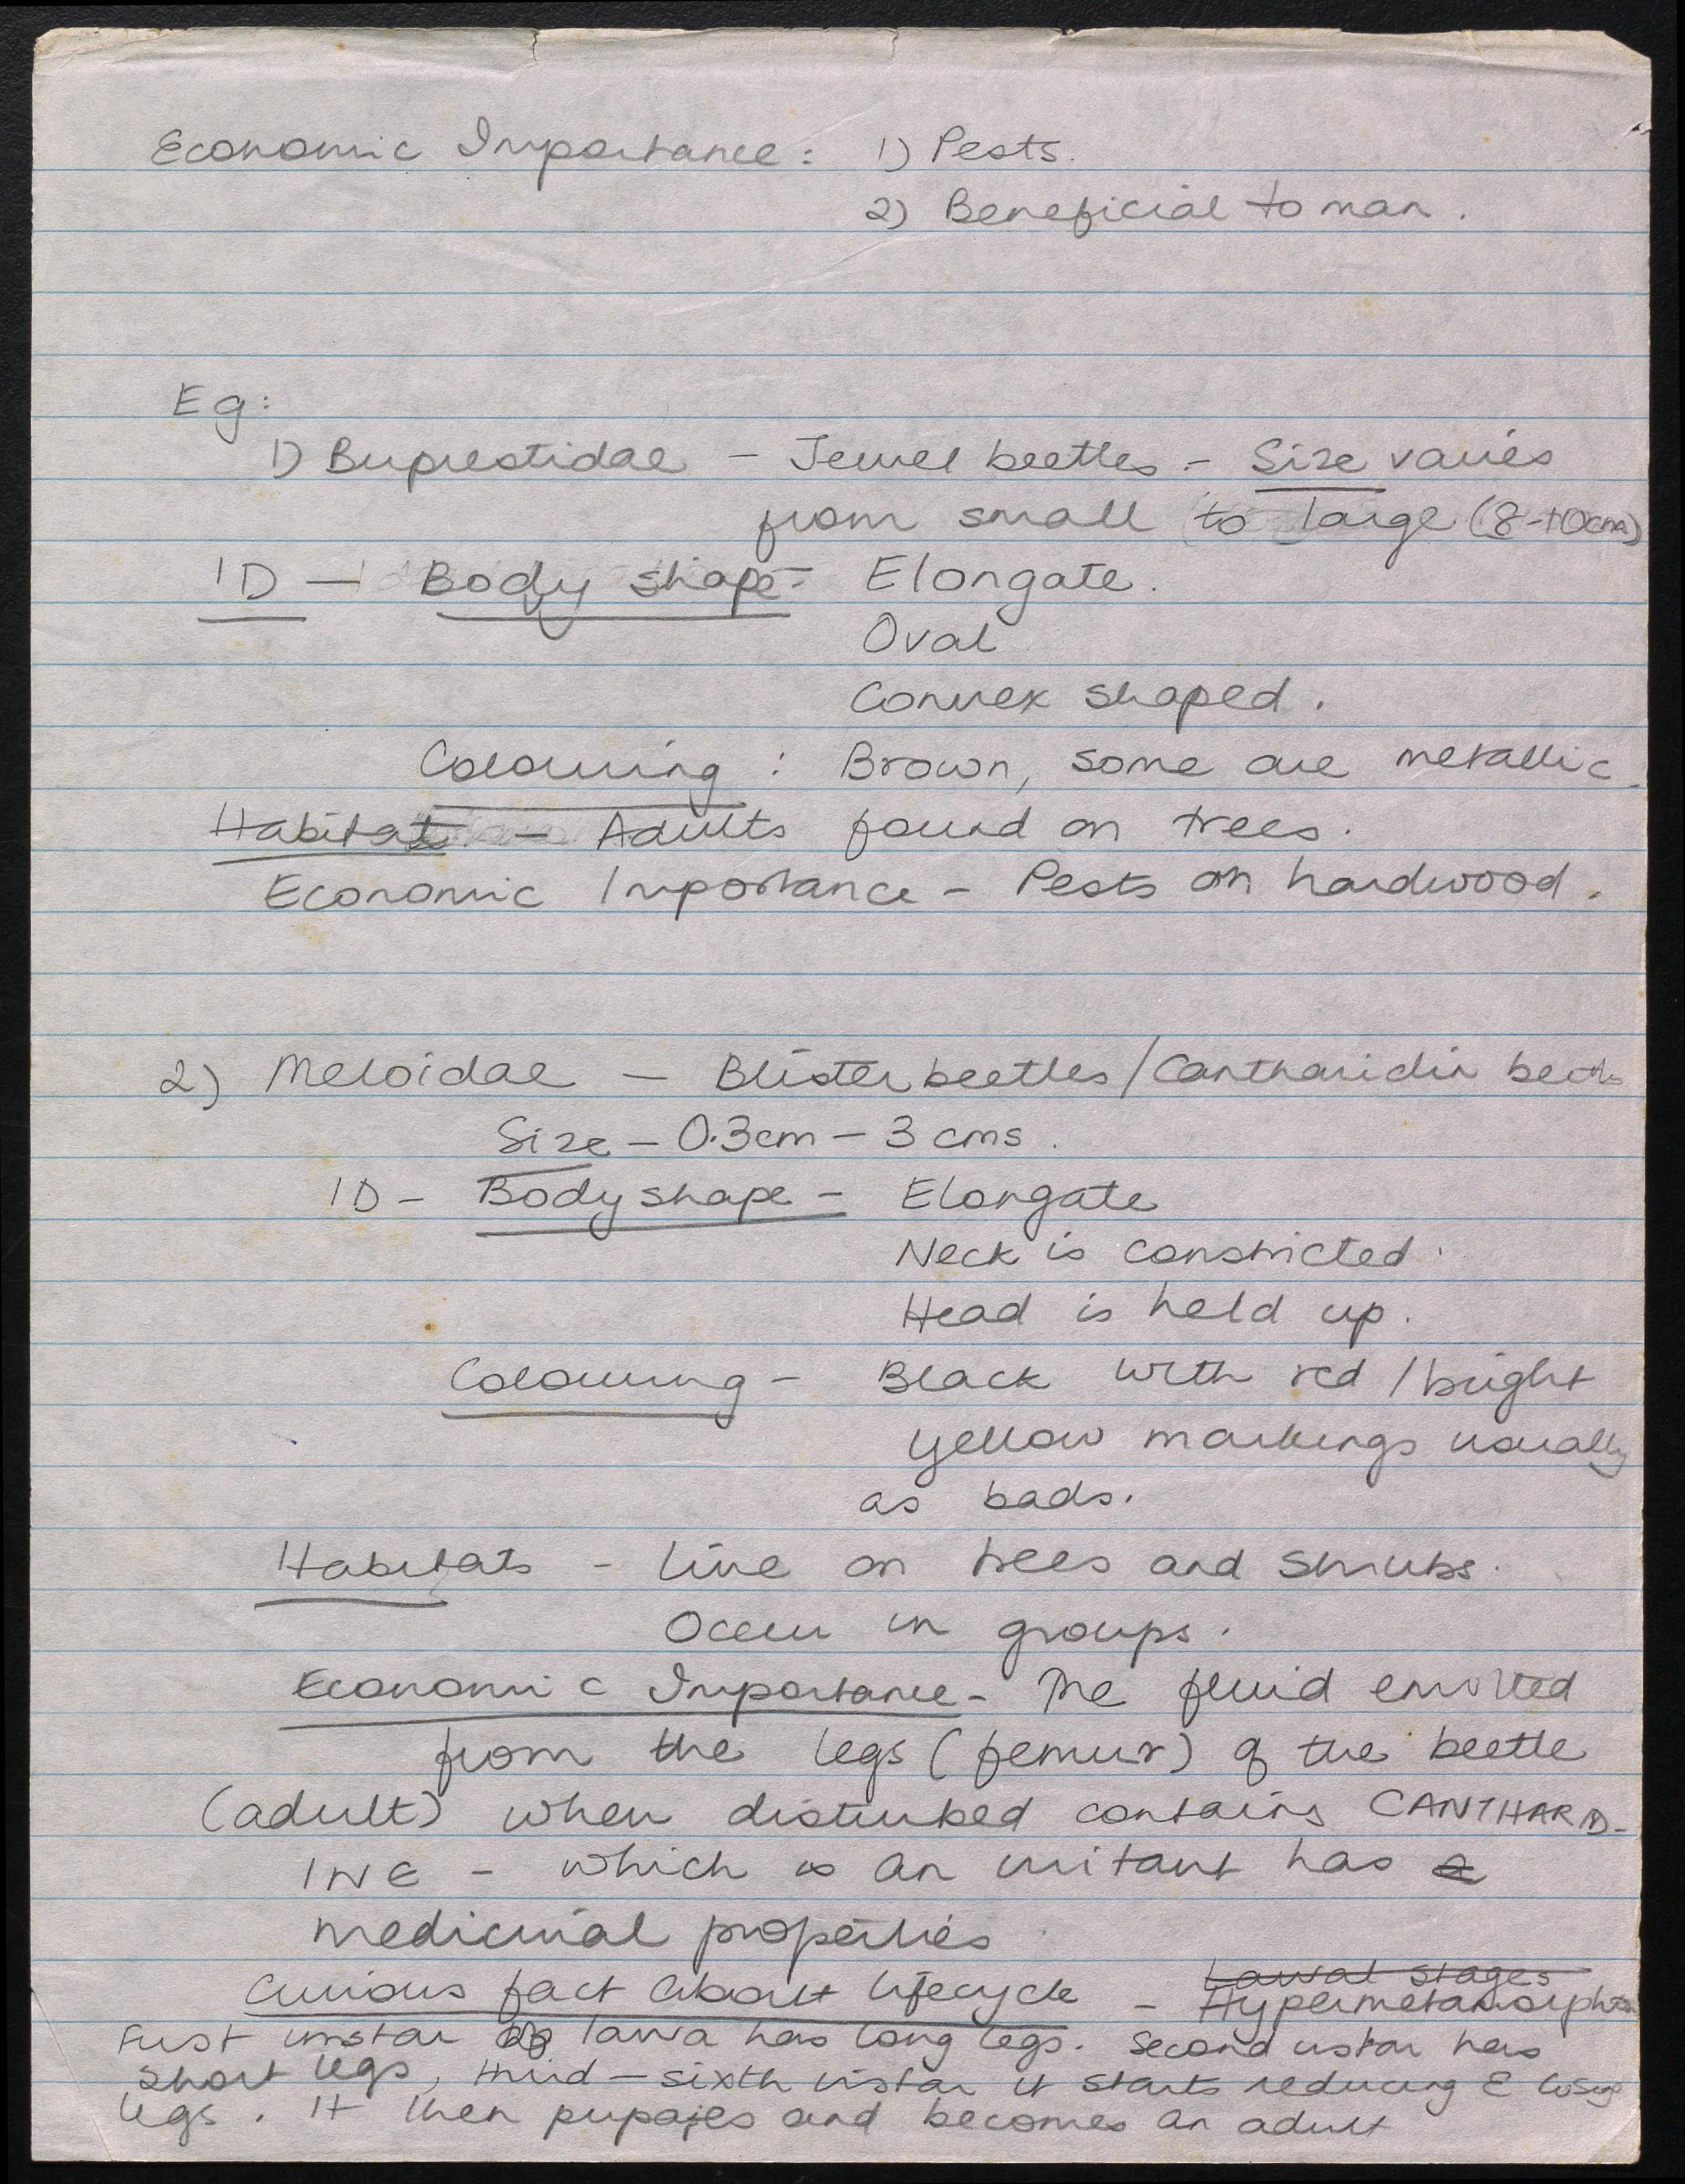 Economic Importance : 1) Pests.
2) Beneficial to man .
Eg:
1) Buprestidae - Jewel beetles - Size varies
from small to large (8-10cm)
ID - Body shape - Elongate.
Oval
Convex shaped .
Colouring : Brown, some are metallic
Habitat - Adults found on trees.
Economic Importance - Pests on hardwood .
2) Meloidae - Blister beetles / Cantharidin beetles
Size - 0.3cm - 3 cms .
ID - Body shape - Elongate
Neck is constricted .
Head is held up .
Colouring - Black with red / bright
yellow markings usually
as bads.
Habitats - Live on trees and shrubs.
Occur in groups .
Economic Importance - The fluid emitted
from the legs (femur) of the beetle
(adult) when disturbed contains CANTHARID-
INE - which is an irritant has a
medicinal properties
Larval stages
Curious fact about lifecycle - Hypermetamorphosis
First instar larva has long legs. Second instar has
short legs, third - sixth instar it starts reducing & losing
legs . It then pupates and becomes an adult